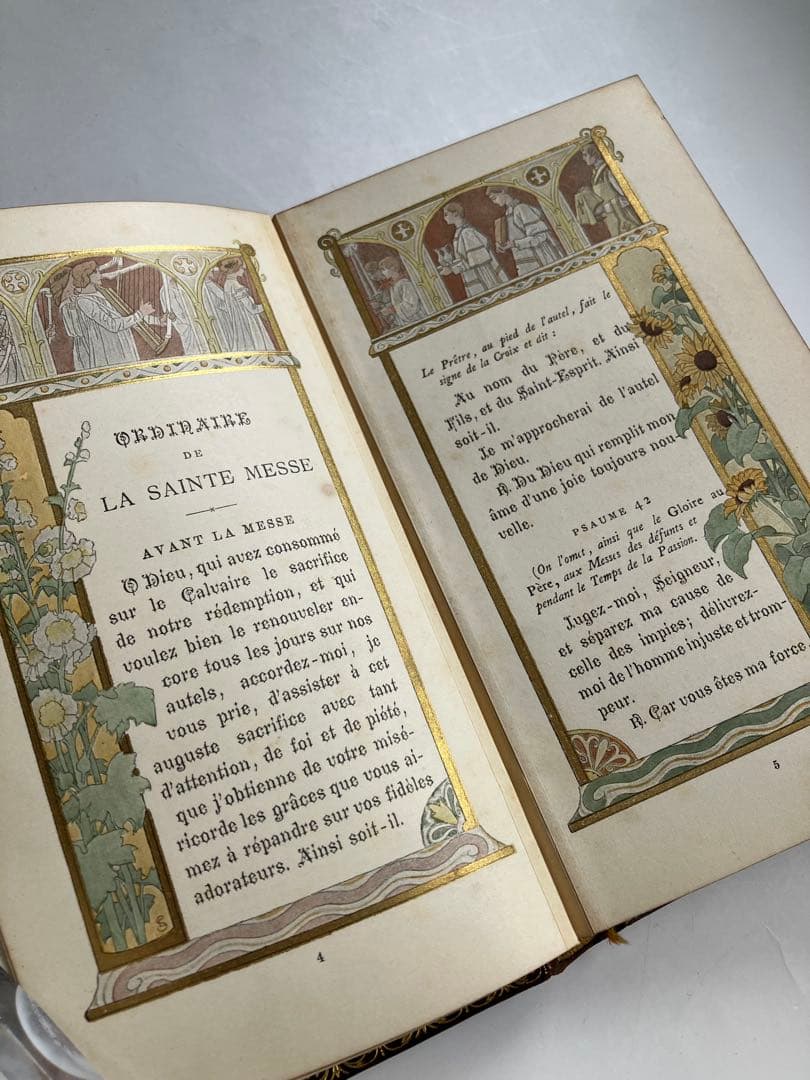 ORDINAIRE
DE
LA SAINTE MESSE
AVANT LA MESSE
O Dieu, qui avez consommé
sur le Calvaire le sacrifice
de notre rédemption, et qui
voulez bien le renouveler en-
core tous les jours sur nos
autels, accordez-moi, je
vous prie, d'assister à cet
auguste sacrifice avec tant
d'attention, de foi et de piété,
que j'obtienne de votre misé-
ricorde les grâces que vous ai-
mez à répandre sur vos fidèles
adorateurs. Ainsi soit-il.
4
Le Prêtre, au pied de l'autel, fait le
signe de la Croix et dit :
Au nom du Père, et du
Fils, et du Saint-Esprit. Ainsi
soit-il.
Je m'approcherai de l'autel
de Dieu.
R. Du Dieu qui remplit mon
âme d'une joie toujours nou-
velle.
PSAUME 42
(On l'omet, ainsi que le Gloire au
Père, aux Messes des défunts et
pendant le Temps de la Passion.
Jugez-moi, Seigneur,
et séparez ma cause de
celle des impies; délivrez-
moi de l'homme injuste et trom-
peur.
R. Car vous êtes ma force,
5